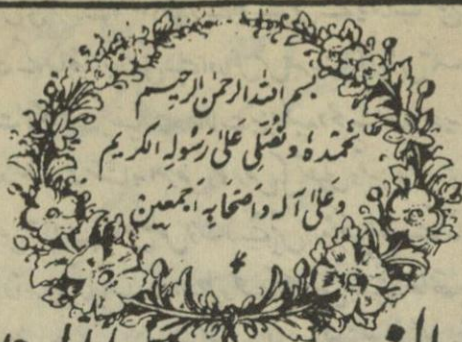 بسم اللہ الرحمٰن الرحیم
نحمدہٗ و نُصَلّی عَلیٰ رَسُولِہِ الکریم
وَعَلیٰ آلہ وَاَصْحَابِہٖ اَجْمَعِین